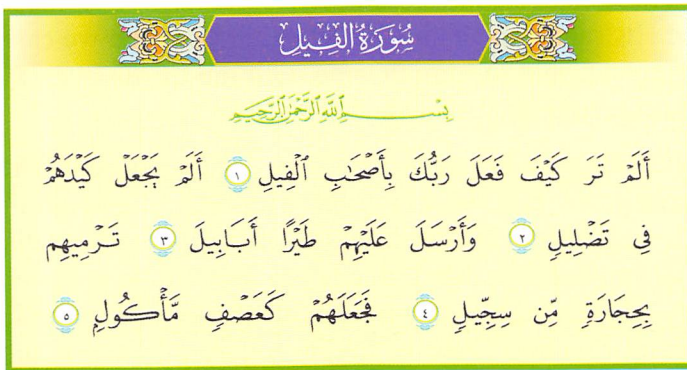 سُورَةُ الفِيلِ
بِسْمِ ٱللَّهِ ٱلرَّحْمَٰنِ ٱلرَّحِيمِ
أَلَمْ تَرَ كَيْفَ فَعَلَ رَبُّكَ بِأَصْحَٰبِ ٱلْفِيلِ ١ أَلَمْ يَجْعَلْ كَيْدَهُمْ
فِى تَضْلِيلٍ ٢ وَأَرْسَلَ عَلَيْهِمْ طَيْرًا أَبَابِيلَ ٣ تَرْمِيهِم
بِحِجَارَةٍ مِّن سِجِّيلٍ ٤ فَجَعَلَهُمْ كَعَصْفٍ مَّأْكُولٍ ٥